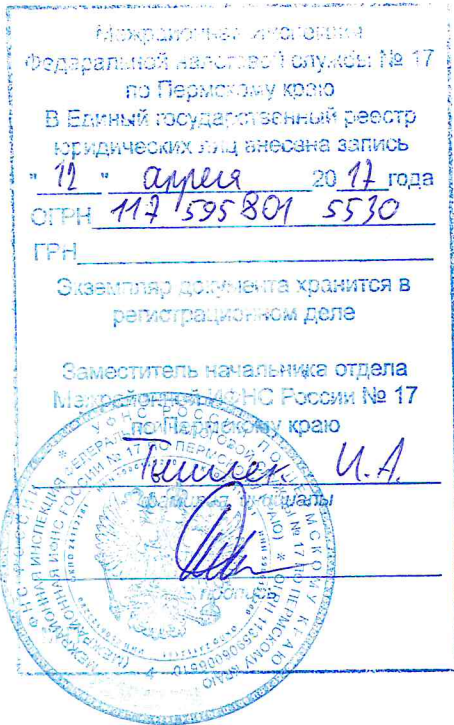 Межрайонная инспекция
Федеральной налоговой службы № 17
по Пермскому краю
В Единый государственный реестр
юридических лиц внесена запись
" 12 " апреля 2017 года
ОГРН 117 595 801 5530
ГРН
Экземпляр документа хранится в
регистрационном деле
Заместитель начальника отдела
Межрайонной ИФНС России № 17
по Пермскому краю
И.А.
фамилия, инициалы
подпись